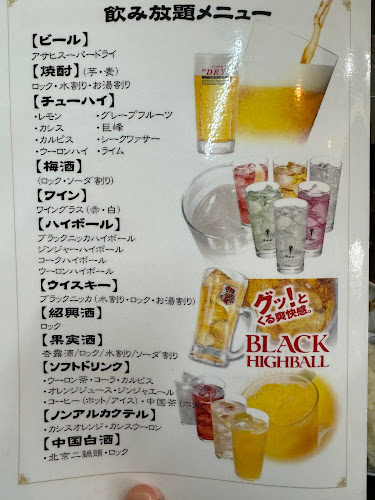 飲み放題メニュー
【ビール】
アサヒスーパードライ
【焼酎】(芋・麦)
ロック・水割り・お湯割り
【チューハイ】
・レモン ・グレープフルーツ
・カシス ・巨峰
・カルピス ・シークワァサー
・ウーロンハイ ・ライム
【梅酒】
(ロック・ソーダ割り)
【ワイン】
ワイングラス(赤・白)
【ハイボール】
ブラックニッカハイボール
ジンジャーハイボール
コークハイボール
ウーロンハイボール
【ウイスキー】
ブラックニッカ(水割り・ロック・お湯割り)
【紹興酒】
ロック
【果実酒】
杏露酒/ロック/水割り/ソーダ割り
【ソフトドリンク】
・ウーロン茶・コーラ・カルピス
・オレンジジュース・ジンジャエール
・コーヒー(ホット/アイス)・中国茶(ホッ
【ノンアルカクテル】
・カシスオレンジ・カシスウーロン
【中国白酒】
・北京二鍋頭・ロック
DRY
グッ!と
くる爽快感。
BLACK
HIGHBALL